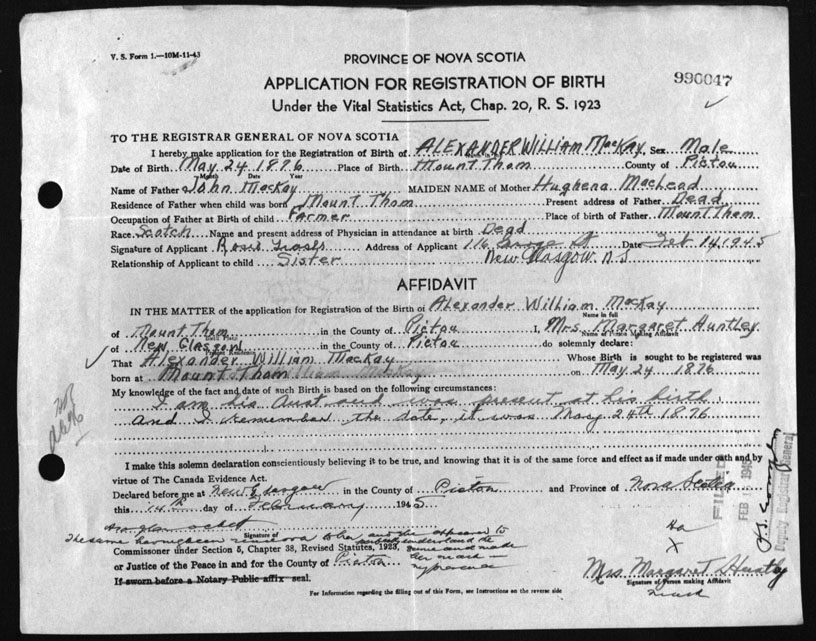 V. S. Form 1.—10M-11-43
PROVINCE OF NOVA SCOTIA
APPLICATION FOR REGISTRATION OF BIRTH
990047
Under the Vital Statistics Act, Chap. 20, R. S. 1923
TO THE REGISTRAR GENERAL OF NOVA SCOTIA
I hereby make application for the Registration of Birth of ALEXANDER WILLIAM MacKAY, Sex Male
Date of Birth May 24 1876 Place of Birth Mount Thom County of Pictou
Month Date Year
Name of Father John MacKay MAIDEN NAME of Mother Hughena MacLead
Residence of Father when child was born Mount Thom Present address of Father Dead
Occupation of Father at Birth of child Farmer Place of birth of Father Mount Thom
Race Scotch Name and present address of Physician in attendance at birth Dead
Signature of Applicant Rosie Address of Applicant 116 George St Date Feb 14, 1945
Relationship of Applicant to child Sister New Glasgow N.S
AFFIDAVIT
IN THE MATTER of the application for Registration of the Birth of Alexander William MacKay
Name in full
of Mount Thom in the County of Pictou I, Mrs. Margaret Huntley
Name of Person Making Affidavit
of New Glasgow in the County of Pictou do solemnly declare:
That Alexander William MacKay Whose Birth is sought to be registered was
born at Mount Thom on May 24 1876
My knowledge of the fact and date of such Birth is based on the following circumstances:
I am his Aunt and was present at his birth
and I remember the date, it was May 24th 1876
I make this solemn declaration conscientiously believing it to be true, and knowing that it is of the same force and effect as if made under oath and by
virtue of The Canada Evidence Act.
Declared before me at New Glasgow in the County of Pictou and Province of Nova Scotia
this 14th day of February 1945
Signature of
The same having been read over to her and she appeared to
understand the
Commissioner under Section 5, Chapter 38, Revised Statutes, 1923, same and made
or Justice of the Peace in and for the County of Pictou her mark in
my presence
If sworn before a Notary Public affix seal.
her
X
Mrs Margaret Huntley
Signature of Person making Affidavit
mark
For Information regarding the filling out of this Form, see Instructions on the reverse side
FILED
FEB 1945
Deputy Registrar General